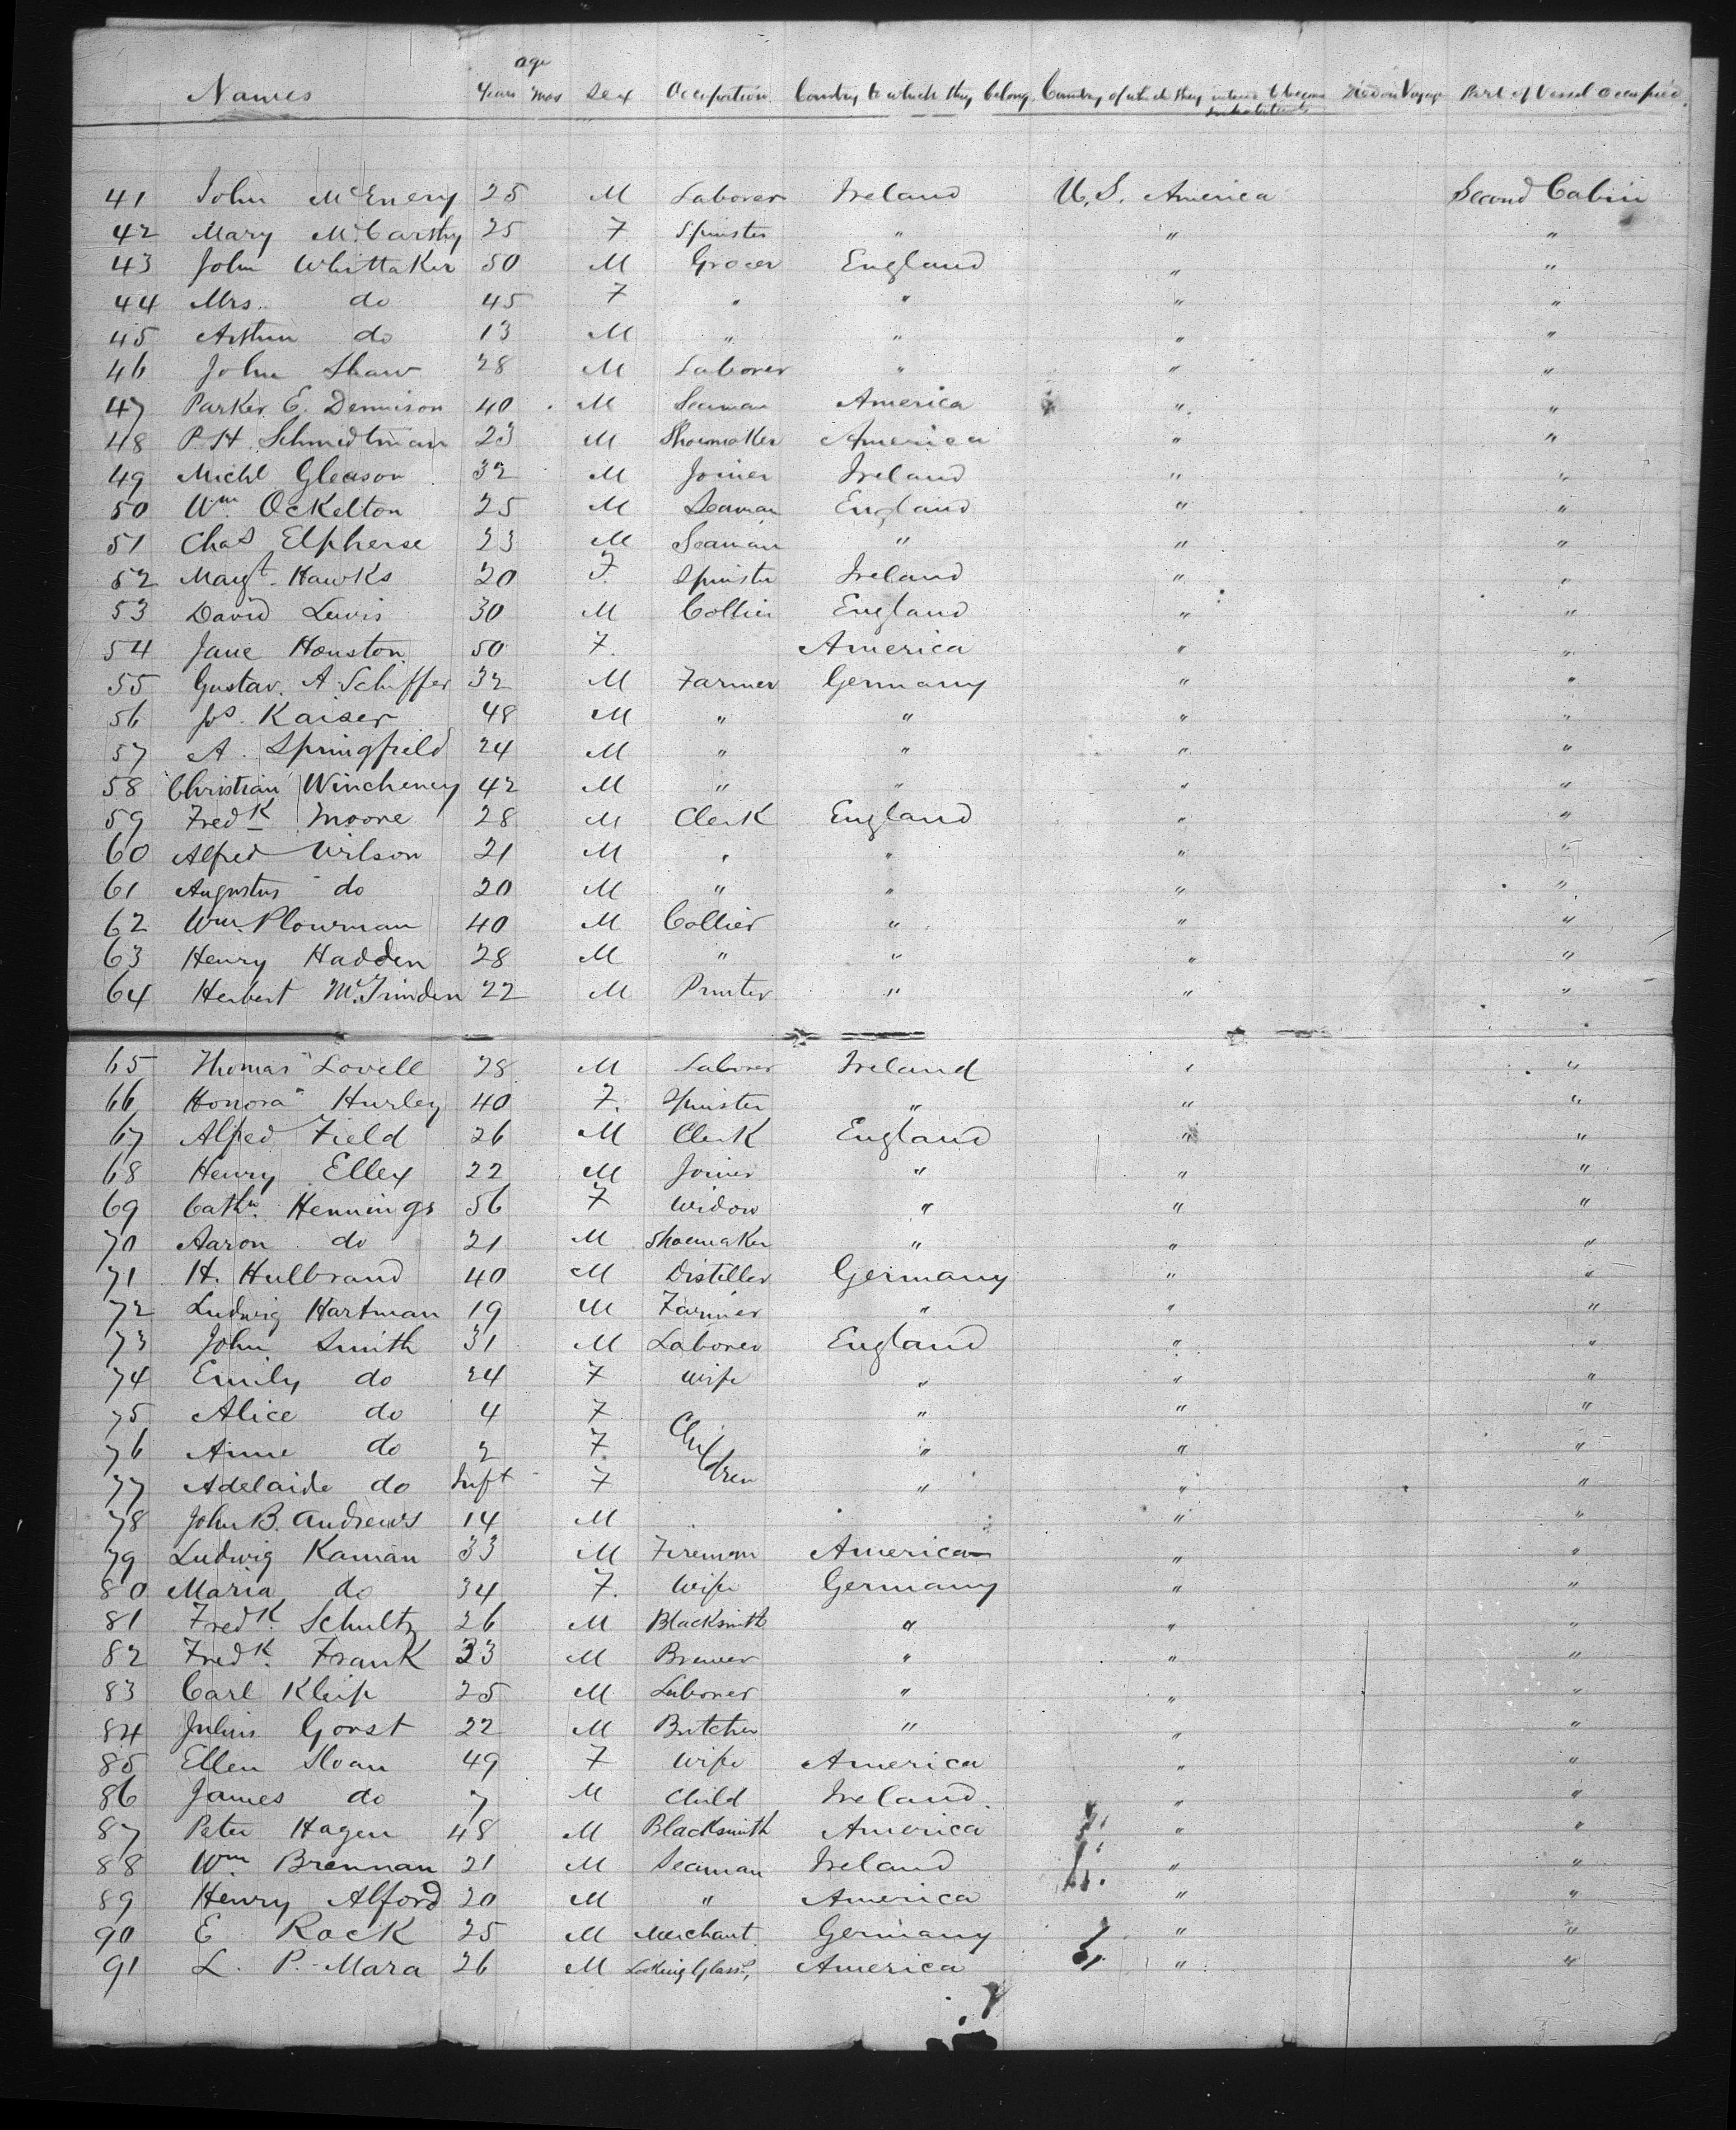 age
Names Years Mos Sex Occupation Country to which they belong Country of which they intend to become inhabitants Died on Voyage Part of Vessel Occupied
41 John McEnery 25 M Laborer Ireland U.S. America Second Cabin
42 Mary McCarthy 25 F Spinster " " "
43 John Whittaker 50 M Grocer England " "
44 Mrs. do 45 F " " " "
45 Arthur do 13 M " " " "
46 John Shaw 28 M Laborer " " "
47 Parker E. Dennison 40 M Seaman America " "
48 P. H. Schmedtman 23 M Shoemaker America " "
49 Michl Gleason 32 M Joiner Ireland " "
50 Wm. Ockelton 25 M Seaman England " "
51 Chas Elpherse 23 M Seaman " " "
52 Margt. Hawks 20 F. Spinster Ireland " "
53 David Lewis 30 M Collier England " "
54 Jane Houston 50 F. America " "
55 Gustav. A Schiffer 32 M Farmer Germany " "
56 Jos. Kaiser 48 M " " " "
57 A. Springfield 24 M " " " "
58 Christian Wincheney 42 M " " " "
59 Fredk Moore 28 M Clerk England " "
60 Alfred Wilson 21 M " " " "
61 Augustus do 20 M " " " "
62 Wm. Plowman 40 M Collier " " "
63 Henry Hadden 28 M " " " "
64 Herbert 22 M Printer " " "
65 Thomas Lovell 28 M Laborer Ireland " "
66 Honora Hurley 40 F. Spinster " " "
67 Alfred Field 26 M Clerk England " "
68 Henry Elley 22 M Joiner " " "
69 Cathn. Hennings 56 F Widow " " "
70 Aaron do 21 M Shoemaker " " "
71 H. Hulbrand 40 M Distiller Germany " "
72 Ludwig Hartman 19 M Farmer " " "
73 John Smith 31 M Laborer England " "
74 Emily do 24 F Wife " " "
75 Alice do 4 F Children " " "
76 Anne do 2 F " " "
77 Adelaide do Inft F " " "
78 John B. Andrews 14 M " "
79 Ludwig Kaman 33 M Fireman America " "
80 Maria do 34 F. Wife Germany " "
81 Fredk. Schultz 26 M Blacksmith " " "
82 Fredk. Frank 33 M Brewer " " "
83 Carl Kleip 25 M Laborer " " "
84 Julius Gorst 22 M Butcher " " "
85 Ellen Sloan 49 F Wife America " "
86 James do 7 M Child Ireland " "
87 Peter Hagen 48 M Blacksmith America " "
88 Wm Brennan 21 M Seaman Ireland " "
89 Henry Alford 20 M " America " "
90 E. Rock 25 M Merchant Germany " "
91 L. P. Mara 26 M Looking Glass America " "